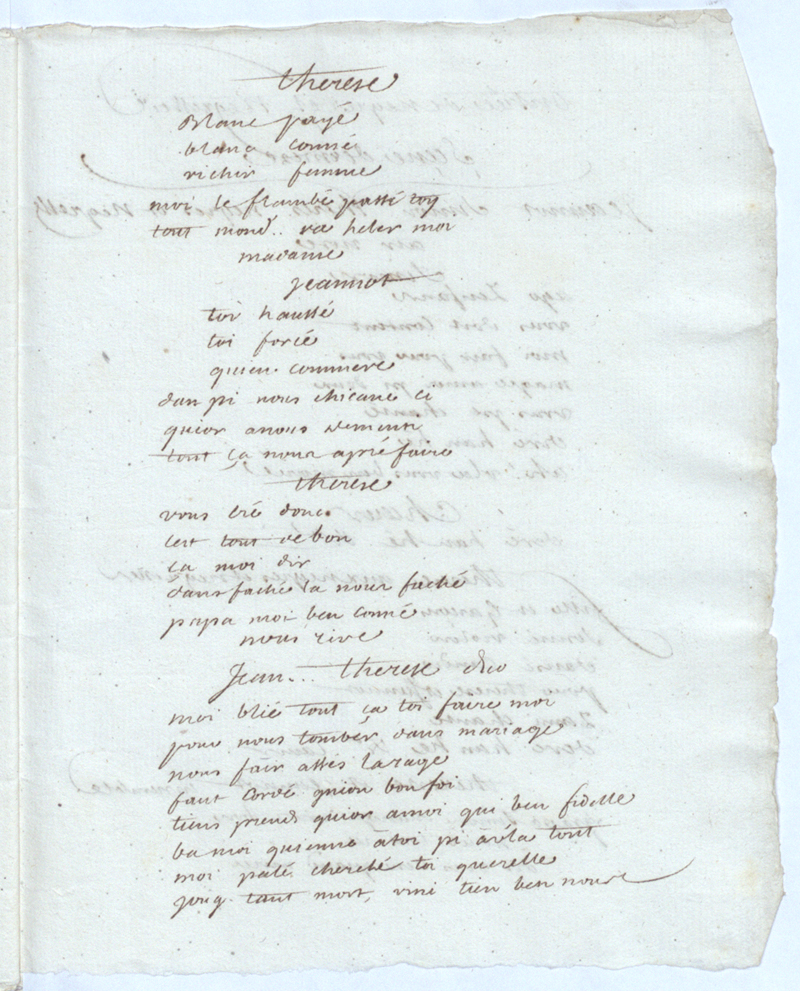 therese
Blanc payé
blanc connié
richer femme
moi le flambé passé toy
tout mond.. va heler moi
madame
jeannot
toi haussé
toi forcé
quieu commere
dan pi nous chicané ci
quior a nous dementi
tout ça nous apré faire
therese
vous cré donc
cest tout de bon
ça moi dir
dans faché la nous faché
papa moi ben conné
nous rire
Jean... therese duo
moi blié tout ça toi faire moi
pour nous tombér dans mariage
nous fair assés la rage
faut cordé quion bon foi
tiens prends quior a moi qui ben fidelle
ba moi quienne a toi pi avela tout
moi palé cherché toi querelle
jouq tant mort, vini tien ben nous